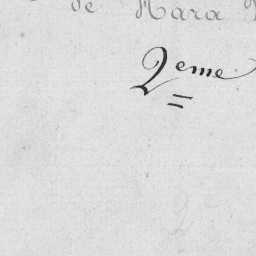 de Mara
2eme